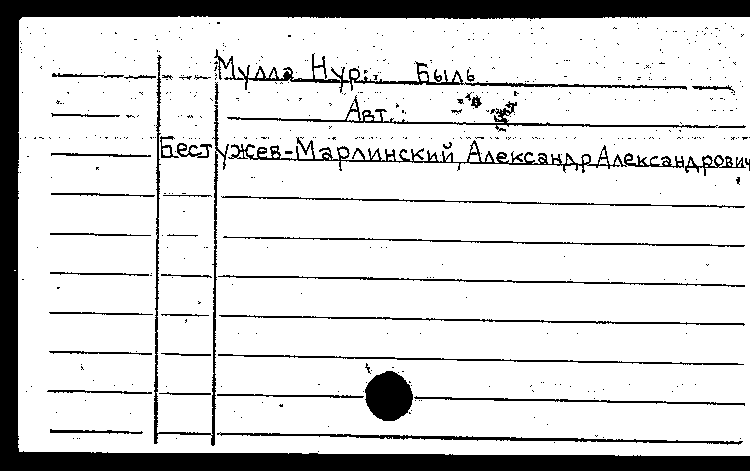 Мулла Нур: Быль
Авт.:
Бестужев-Марлинский, Александр Александрович